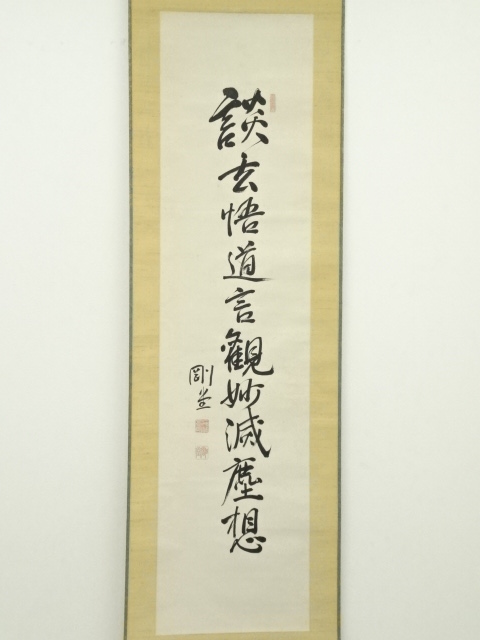 談玄悟道言觀妙滅塵想
剛堂